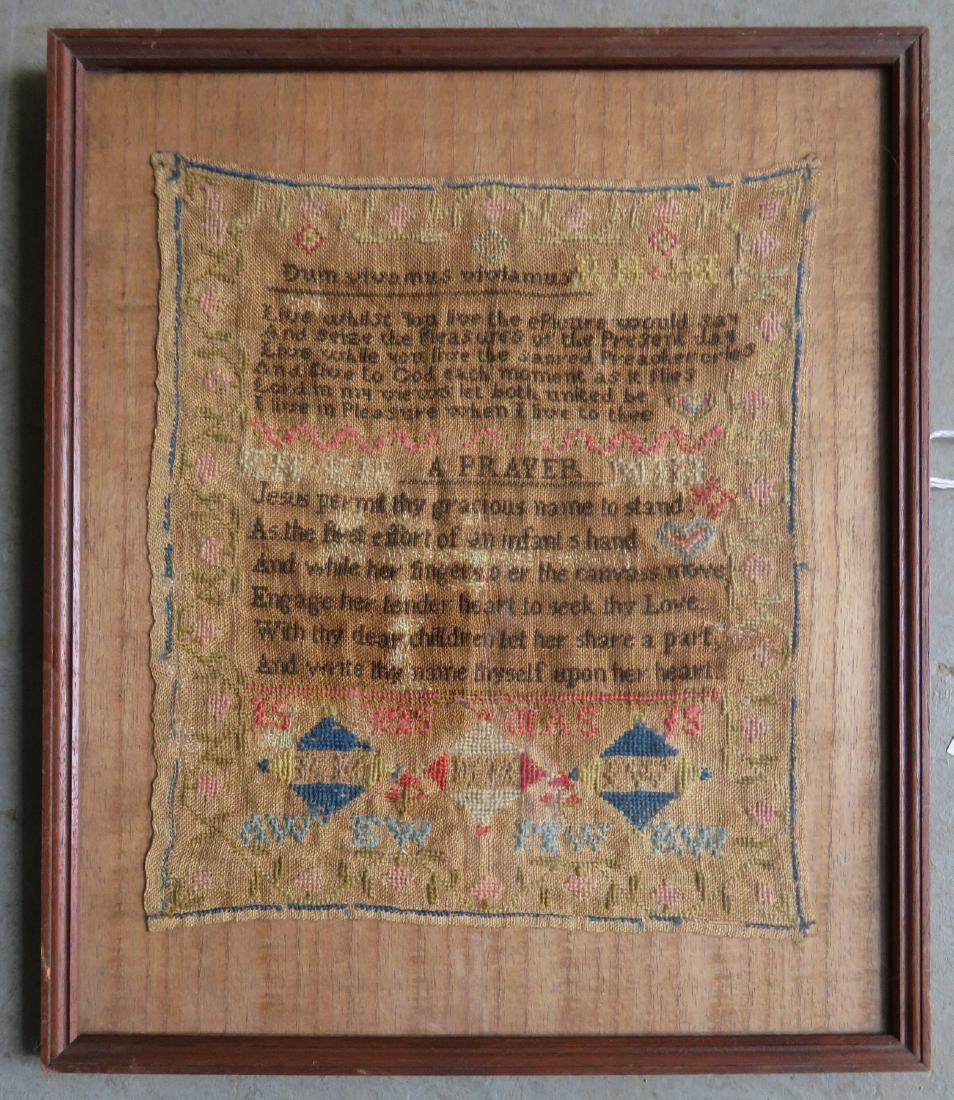 Dum vivamus viviamus
Live whilst you live the epicure would say
And seize the Pleasures of the Present day
Live while you live the sacred Preacher cries
And live to God each moment as it flies
Lord in my views let both united be
I live in Pleasure when I live to thee
A PRAYER
Jesus permit thy gracious name to stand
As the first effort of an infant s hand
And while her fingers o er the canvass move
Engage her tender heart to seek thy Love.
With thy dear children let her share a part,
And write thy name thyself upon her heart.
AW EW MW BW